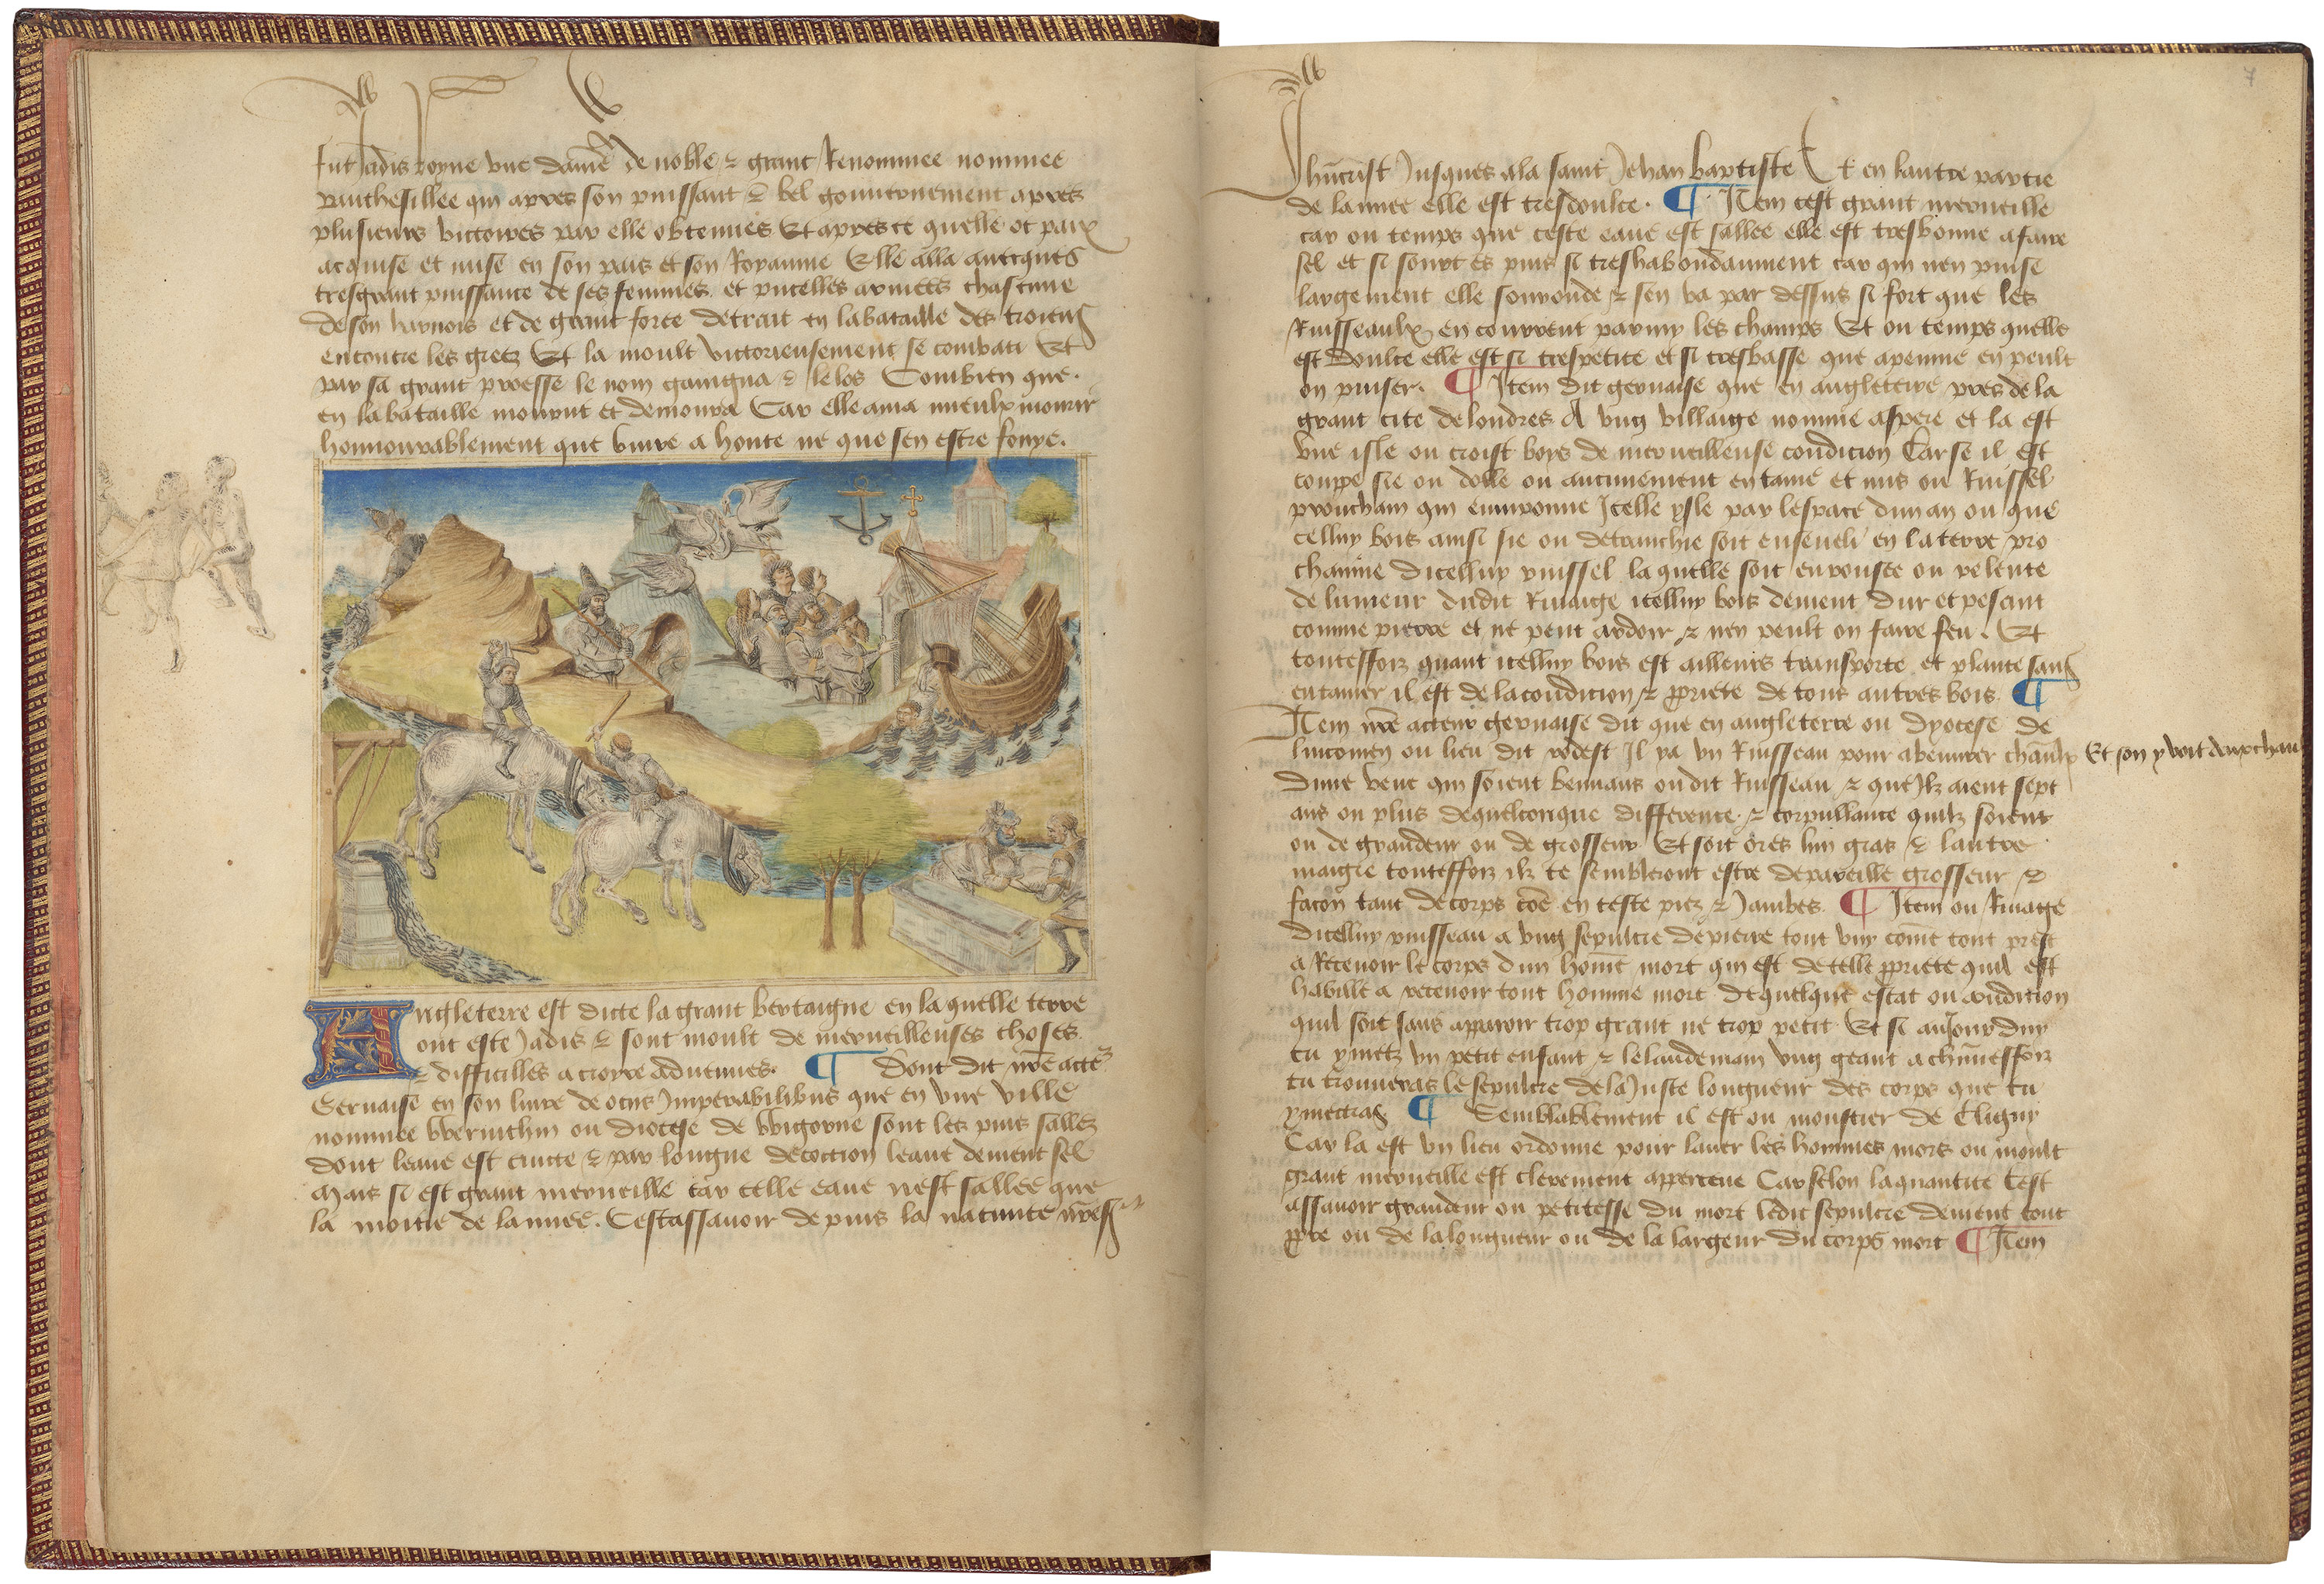 fut Jadis royne vne dame de noble & grant Renommee nommee
panthesillee qui apres son puissant & bel gouuernement apres
plusieurs victoires par elle obtenues Et apres ce quelle ot paix
acquise et mise en son pais et son Royaume Elle alla auecques
tresgrant puissance de ses femmes et pucelles armees chascune
de son harnois et de grant force detrait en la bataille des troiens
encontre les grecz Et la moult victorieusement se combati Et
par sa grant proesse le nom gaingna & le los Combien que
en la bataille mourut et demoura Car elle ama mieulx mourir
honnourablement que viure a honte ne que sen estre fouye.
Angleterre est dicte la grant bertaigne en la quelle terre
ont este Jadis & sont moult de merueilleuses choses
& difficilles a croire aduenues. ¶ Dont dit nr̄e acte᷑
Geruaise en son liure de ocus Jmperabilibus que en vne ville
nommee wernithin ou diocese de wigorne sont les puis sallez
dont leaue est cuicte & par longue decoction leaue deuient sel
Mais si est grant merueille car celle eaue nest sallee que
la moitie de lannee. Cestassauoir de puis la natiuite nr̄e s
7
Jhūcrist Jusques ala saint Jehan baptiste Et en lautre partie
de lannee elle est tresdoulce. ¶ Item cest grant merueille
car ou temps que ceste eaue est sallee elle est tresbonne a faire
sel et si sourt es puis si treshabondaument car qui nen puise
largement elle souronde & sen va par dessus si fort que les
Ruisseaulx en courrent parmy les champs Et ou temps quelle
est doulce elle est si trespetite et si tresbasse que apeinne en peult
on puiser. ¶ Item dit geruaise que en angleterre pres de la
grant cite de londres A vng villaige nomme aspere et la est
vne isle ou croist boys de merueilleuse condicion Car se il est
coupe sie ou dolle ou aucunement entame et mis ou Ruissel
prouchain qui enuironne Jcelle ysle par lespace dun an ou que
celluy bois ainsi sie ou detranchie soit enseueli en la terre pro
chainne dicelluy ruissel la quelle soit enrousee ou relente
de lumeur dudit Riuaige icelluy bois deuient dur et pesant
comme pierre et ne peut ardoir & nen peult on faire feu. Et
touteffoiz quant icelluy bois est ailleurs transporte et plante sans
entamer il est de la condicion & ꝓpriete de tous autres bois. ¶
Item nr̄e acteur geruaise dit que en angleterre ou dyocese de
lincomen ou lieu dit rodest Il ya vn Ruisseau pour abeuurer cheuaulx Et son y voit deux cheuaulx
dune vene qui soient beuuans ou dit Ruisseau & que Jlz aient sept
ans ou plus dequelconque difference & corpullance quilz soient
ou de grandeur ou de grosseur Et soit ores lun gras & lautre
maigre touteffoiz ilz te sembleront estre depareille grosseur &
facon tant de corps cōe en teste piez & Jambes. ¶ Item ou Riuage
dicelluy ruisseau a vng sepulcre de pierre tout vuy com̄e tout prest
a Receuoir le corps dun hom̄e mort qui est detelle ꝓpriete quil est
habille a receuoir tout homme mort de quelque estat ou condicion
quil soit sans apparoir trop grant ne trop petit Et si auJourduy
tu ymetz vn petit enfant & lelandemain vng geant a chūneffoiz
tu trouueras le sepulcre dela Juste longueur des corps que tu
ymectras ¶ Semblablement il est ou moustier de Cligny
Car la est vn lieu ordonne pour lauer les hommes mors ou moult
grant merueille est clerement apperceue Car selon la quantite Cest
assauoir grandeur ou petitesse du mort ledit sepulcre deuient tout
ꝓpre ou de la longueur ou de la largeur du corps mort ¶ Item